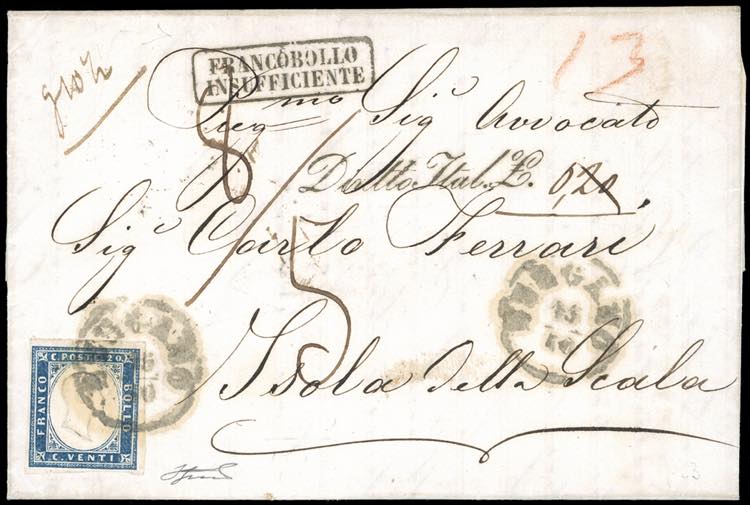 FRANCOBOLLO
INSUFFICIENTE
13
Preg.mo Sig.r Avvocato
8/5
Dritto Ital. £. 0,20
Sig.r Carlo Ferrari
Isola della Scala
C. POSTE 20
FRANCO
BOLLO
C. VENTI